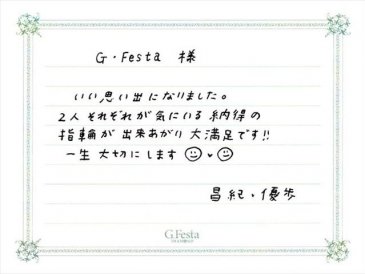 G・Festa 様
いい思い出になりました。
2人それぞれが気にいる納得の
指輪が出来あがり大満足です!!
一生大切にします
昌紀・優歩
G.Festa